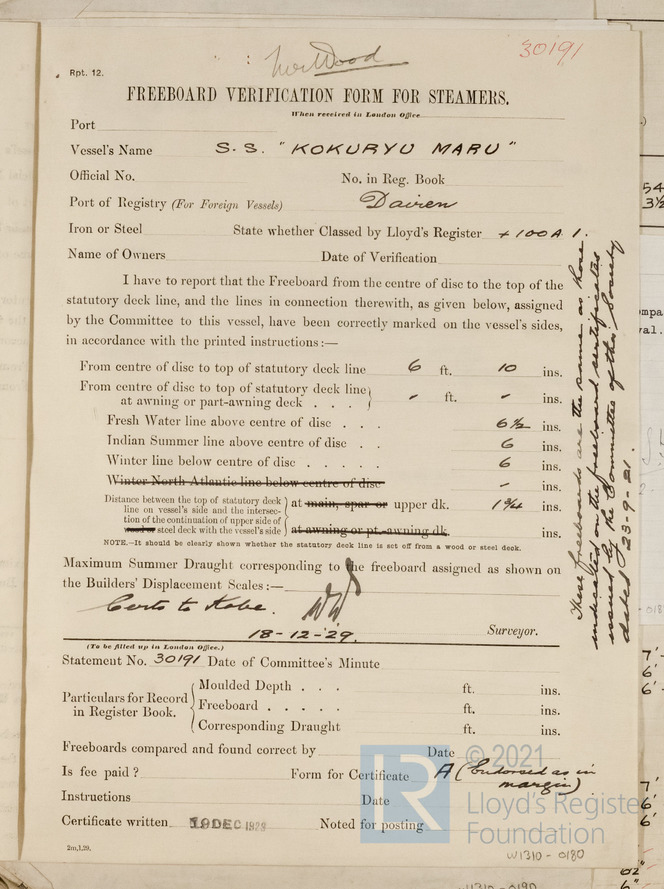 30191
Rpt. 12.
FREEBOARD VERIFICATION FORM FOR STEAMERS.
When received in London Office
Port
Vessel's Name S.S. "KOKURYU MARU"
Official No. No. in Reg. Book
Port of Registry (For Foreign Vessels) Dairen
Iron or Steel State whether Classed by Lloyd's Register +100A1.
Name of Owners Date of Verification
I have to report that the Freeboard from the centre of disc to the top of the
statutory deck line, and the lines in connection therewith, as given below, assigned
by the Committee to this vessel, have been correctly marked on the vessel's sides,
in accordance with the printed instructions:—
From centre of disc to top of statutory deck line 6 ft. 10 ins.
From centre of disc to top of statutory deck line
at awning or part-awning deck . . . - ft. - ins.
Fresh Water line above centre of disc . . . 6½ ins.
Indian Summer line above centre of disc . . 6 ins.
Winter line below centre of disc . . . . . 6 ins.
Winter North Atlantic line below centre of disc - ins.
Distance between the top of statutory deck
line on vessel's side and the intersec-
tion of the continuation of upper side of
steel deck with the vessel's side
at main, spar or upper dk. 1¾ ins.
at awning or pt.-awning dk. ins.
NOTE.—It should be clearly shown whether the statutory deck line is set off from a wood or steel deck.
Maximum Summer Draught corresponding to the freeboard assigned as shown on
the Builders' Displacement Scales:—
Certs to Kobe.
18-12-'29. Surveyor.
(To be filled up in London Office.)
Statement No. 30191 Date of Committee's Minute
Particulars for Record
in Register Book.
Moulded Depth . . . ft. ins.
Freeboard . . . . . ft. ins.
Corresponding Draught ft. ins.
Freeboards compared and found correct by Date
Is fee paid? Form for Certificate A (Endorsed as in
margin)
Instructions Date
Certificate written 19 DEC 1929 Noted for posting
2m,1,29.
These freeboards are the same as those
indicated on the freeboard certificates
issued by the Committee of this Society
dated 23-9-21.
© 2021
Lloyd's Register
Foundation
W1310-0180